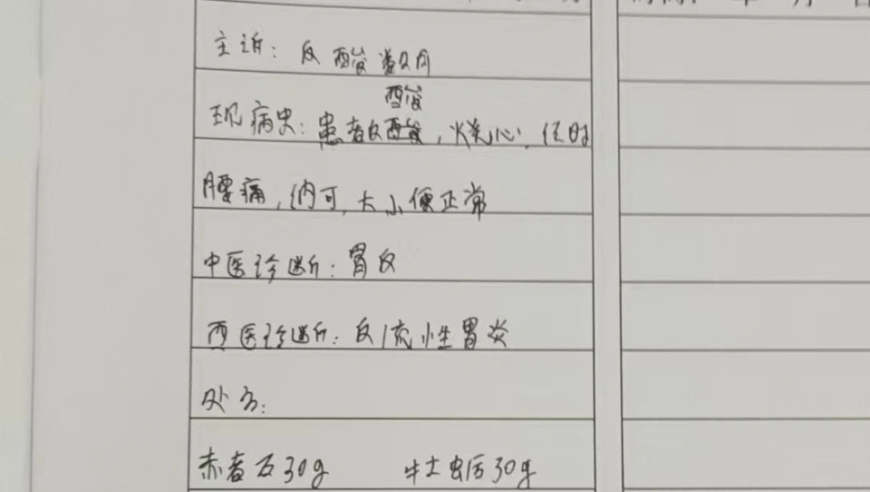 主诉：反酸数月
酸
现病史：患者反酸，烧心，经时
腰痛，纳可，大小便正常
中医诊断：胃反
西医诊断：反流性胃炎
处方：
赤者石30g 牡虫历30g